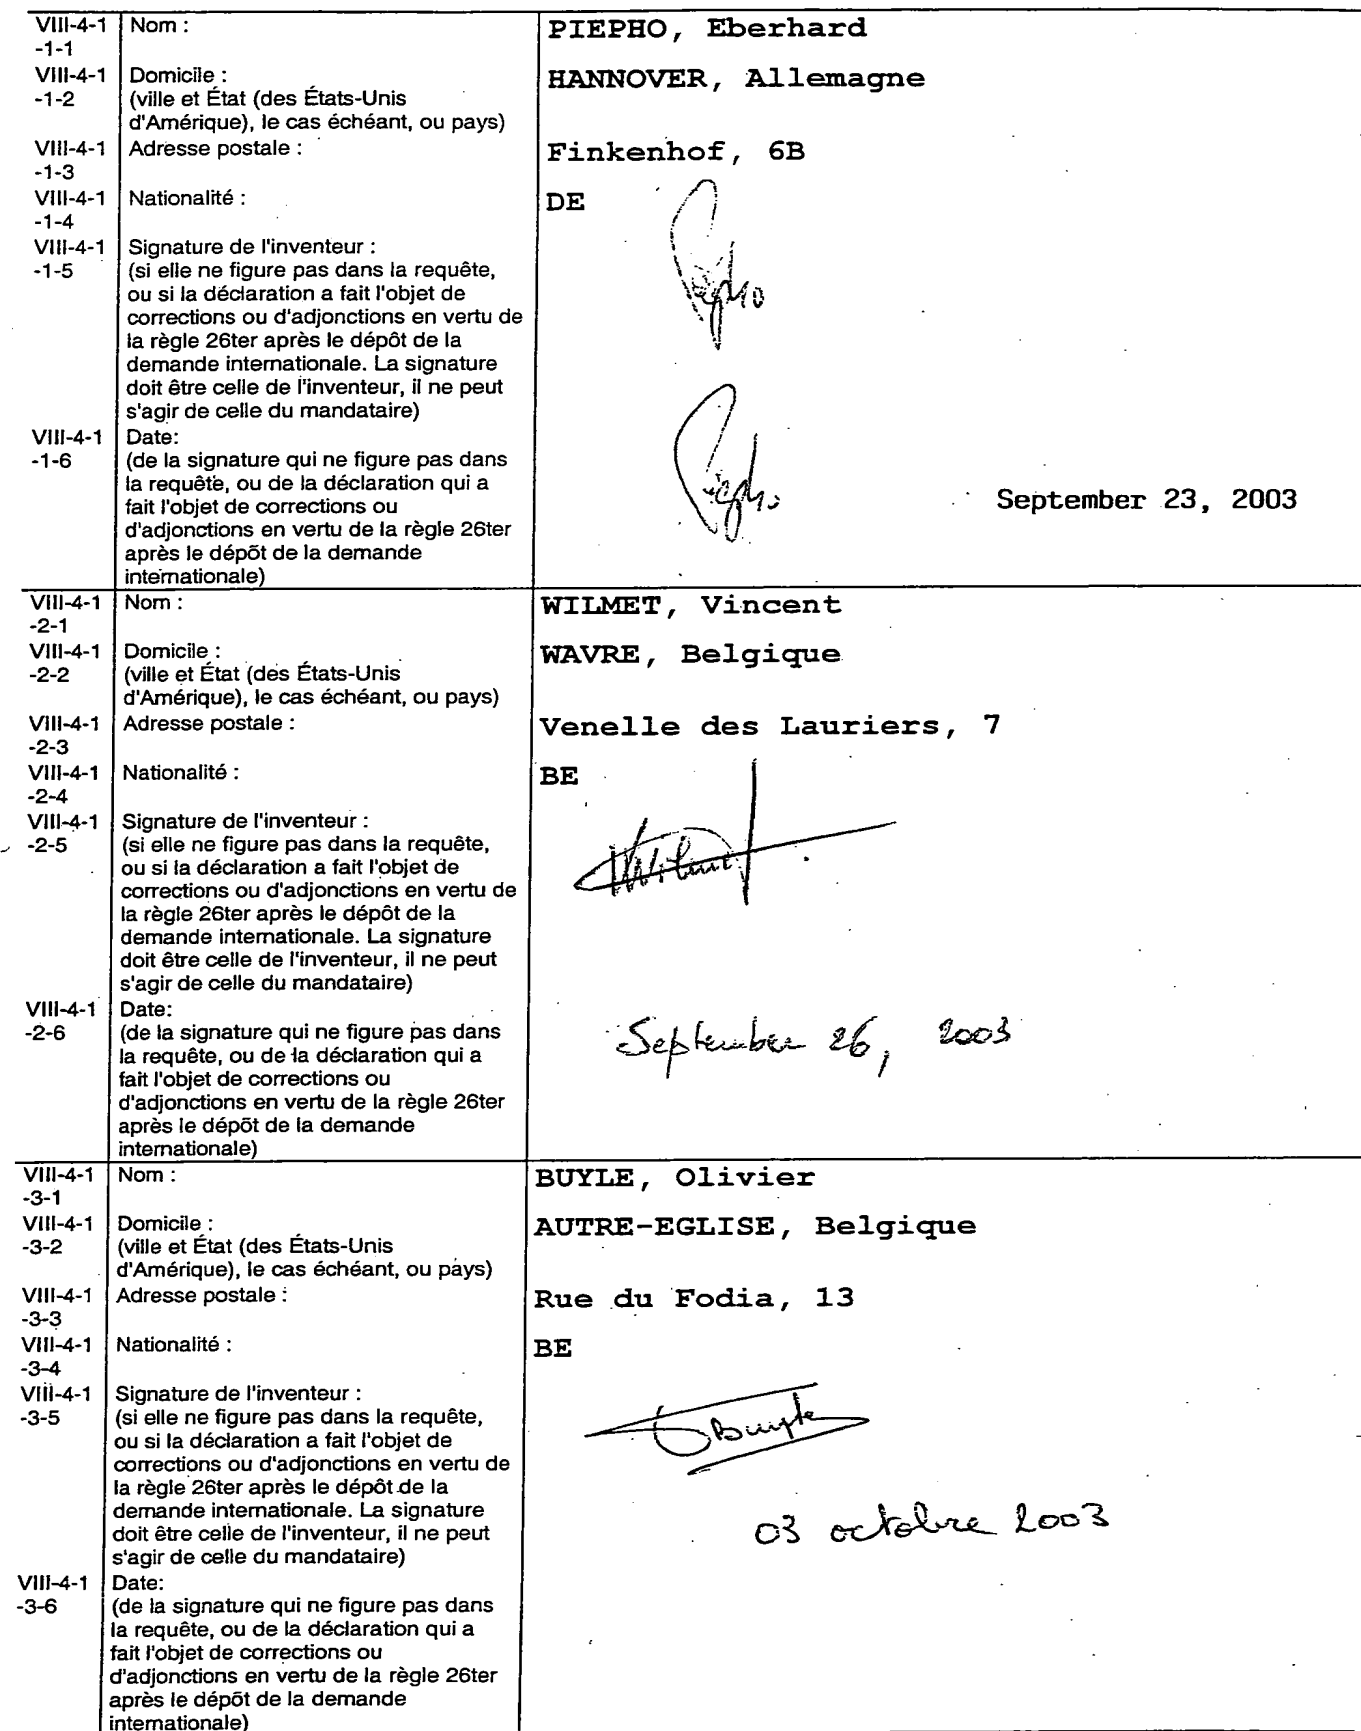 VIII-4-1 Nom : PIEPHO, Eberhard
-1-1
VIII-4-1 Domicile : HANNOVER, Allemagne
-1-2 (ville et État (des États-Unis
d'Amérique), le cas échéant, ou pays)
VIII-4-1 Adresse postale : Finkenhof, 6B
-1-3
VIII-4-1 Nationalité : DE
-1-4
VIII-4-1 Signature de l'inventeur :
-1-5 (si elle ne figure pas dans la requête,
ou si la déclaration a fait l'objet de
corrections ou d'adjonctions en vertu de
la règle 26ter après le dépôt de la
demande internationale. La signature
doit être celle de l'inventeur, il ne peut
s'agir de celle du mandataire)
VIII-4-1 Date:
-1-6 (de la signature qui ne figure pas dans
la requête, ou de la déclaration qui a
fait l'objet de corrections ou September 23, 2003
d'adjonctions en vertu de la règle 26ter
après le dépôt de la demande
internationale)
VIII-4-1 Nom : WILMET, Vincent
-2-1
VIII-4-1 Domicile : WAVRE, Belgique
-2-2 (ville et État (des États-Unis
d'Amérique), le cas échéant, ou pays)
VIII-4-1 Adresse postale : Venelle des Lauriers, 7
-2-3
VIII-4-1 Nationalité : BE
-2-4
VIII-4-1 Signature de l'inventeur :
-2-5 (si elle ne figure pas dans la requête,
ou si la déclaration a fait l'objet de
corrections ou d'adjonctions en vertu de
la règle 26ter après le dépôt de la
demande internationale. La signature
doit être celle de l'inventeur, il ne peut
s'agir de celle du mandataire)
VIII-4-1 Date:
-2-6 (de la signature qui ne figure pas dans September 26, 2003
la requête, ou de la déclaration qui a
fait l'objet de corrections ou
d'adjonctions en vertu de la règle 26ter
après le dépôt de la demande
internationale)
VIII-4-1 Nom : BUYLE, Olivier
-3-1
VIII-4-1 Domicile : AUTRE-EGLISE, Belgique
-3-2 (ville et État (des États-Unis
d'Amérique), le cas échéant, ou pays)
VIII-4-1 Adresse postale : Rue du Fodia, 13
-3-3
VIII-4-1 Nationalité : BE
-3-4
VIII-4-1 Signature de l'inventeur :
-3-5 (si elle ne figure pas dans la requête, OBuyle
ou si la déclaration a fait l'objet de
corrections ou d'adjonctions en vertu de
la règle 26ter après le dépôt de la
demande internationale. La signature 03 octobre 2003
doit être celle de l'inventeur, il ne peut
s'agir de celle du mandataire)
VIII-4-1 Date:
-3-6 (de la signature qui ne figure pas dans
la requête, ou de la déclaration qui a
fait l'objet de corrections ou
d'adjonctions en vertu de la règle 26ter
après le dépôt de la demande
internationale)